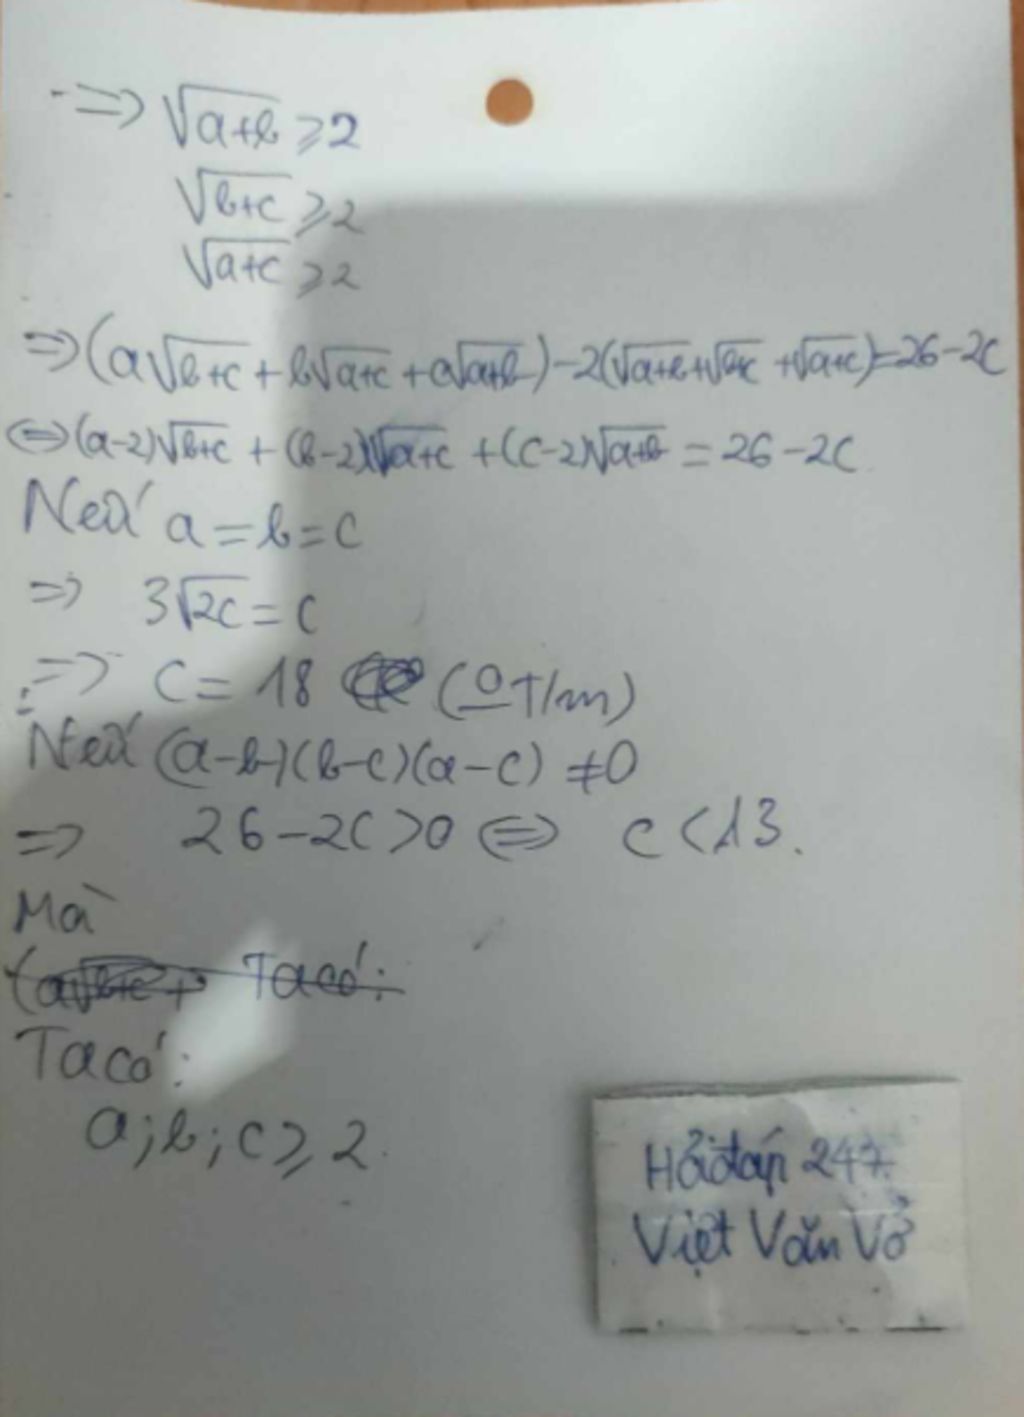 => √(a+b) ≥ 2
√(b+c) ≥ 2
√(a+c) ≥ 2
=> (a√(b+c) + b√(a+c) + c√(a+b)) - 2(√(a+b) + √(b+c) + √(a+c)) = 26 - 2c
<=> (a-2)√(b+c) + (b-2)√(a+c) + (c-2)√(a+b) = 26 - 2c
Nếu a = b = c
=> 3√(2c) = c
=> c = 18 (0T/m)
Nếu (a-b)(b-c)(a-c) ≠ 0
=> 26 - 2c > 0 <=> c < 13.
Mà
Ta có:
Ta có:
a; b; c ≥ 2.
Hỏi đáp 247
Việt Văn Vở